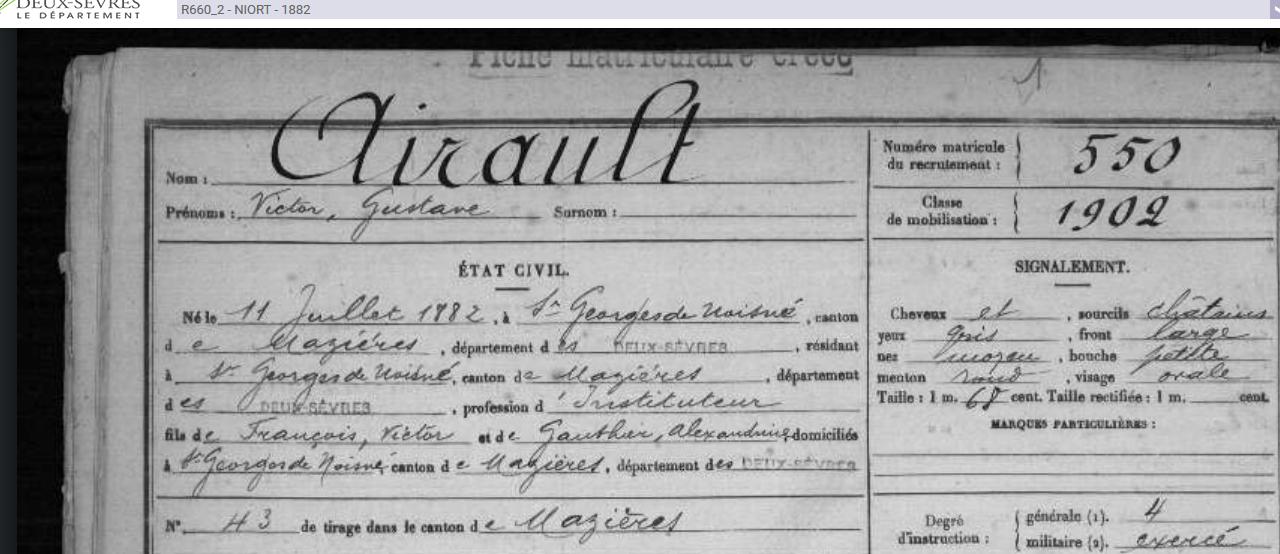 DEUX-SÈVRES
LE DÉPARTEMENT
R660_2 - NIORT - 1882
Fiche matriculaire créée
Nom : Airault
Prénoms : Victor, Gustave Surnom :
Numéro matricule du recrutement : 550
Classe de mobilisation : 1902
ÉTAT CIVIL.
Né le 11 Juillet 1882, à St Georges de Noisné, canton
d e Mazières, département d es DEUX-SÈVRES, résidant
à St Georges de Noisné, canton de Mazières, département
d es DEUX-SÈVRES, profession d'Instituteur
fils de François, Victor et de Gauthier, Alexandrine, domiciliés
à St Georges de Noisné, canton d e Mazières, département des DEUX-SÈVRES
N° 43 de tirage dans le canton d e Mazières
SIGNALEMENT.
Cheveux et, sourcils châtains
yeux gris, front large
nez moyen, bouche petite
menton rond, visage ovale
Taille : 1 m. 68 cent. Taille rectifiée : 1 m. cent.
MARQUES PARTICULIÈRES :
Degré d'instruction : générale (1). 4
militaire (2). exercé